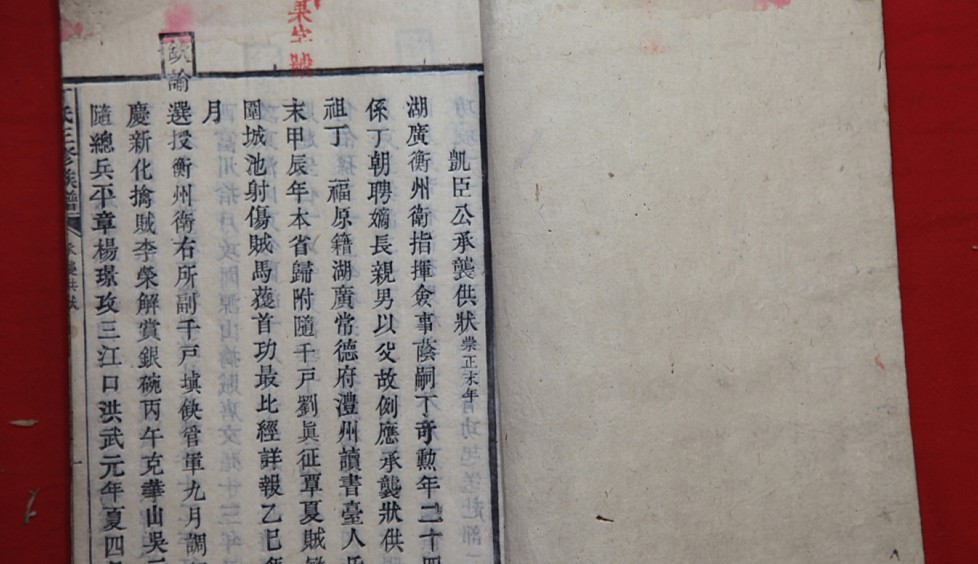 凱臣公承襲供狀崇正末年
湖廣衡州衛指揮僉事蔭嗣丁奇勳年二十四
係丁朝聘嫡長親男以父故例應承襲狀供
祖丁一福原籍湖廣常德府澧州讀書臺人氏
末甲辰年本省歸附隨千戶劉眞征覃夏賊
圍城池射傷賊馬獲首功最比經詳報乙巳年
月
欽諭
選授衡州衛右所副千戶塡鈌管軍九月調
慶新化擒賊李榮解賞銀碗丙午克華山吳
隨總兵平章楊璟攻三江口洪武元年夏四
丁氏三修族譜
承襲供狀
一